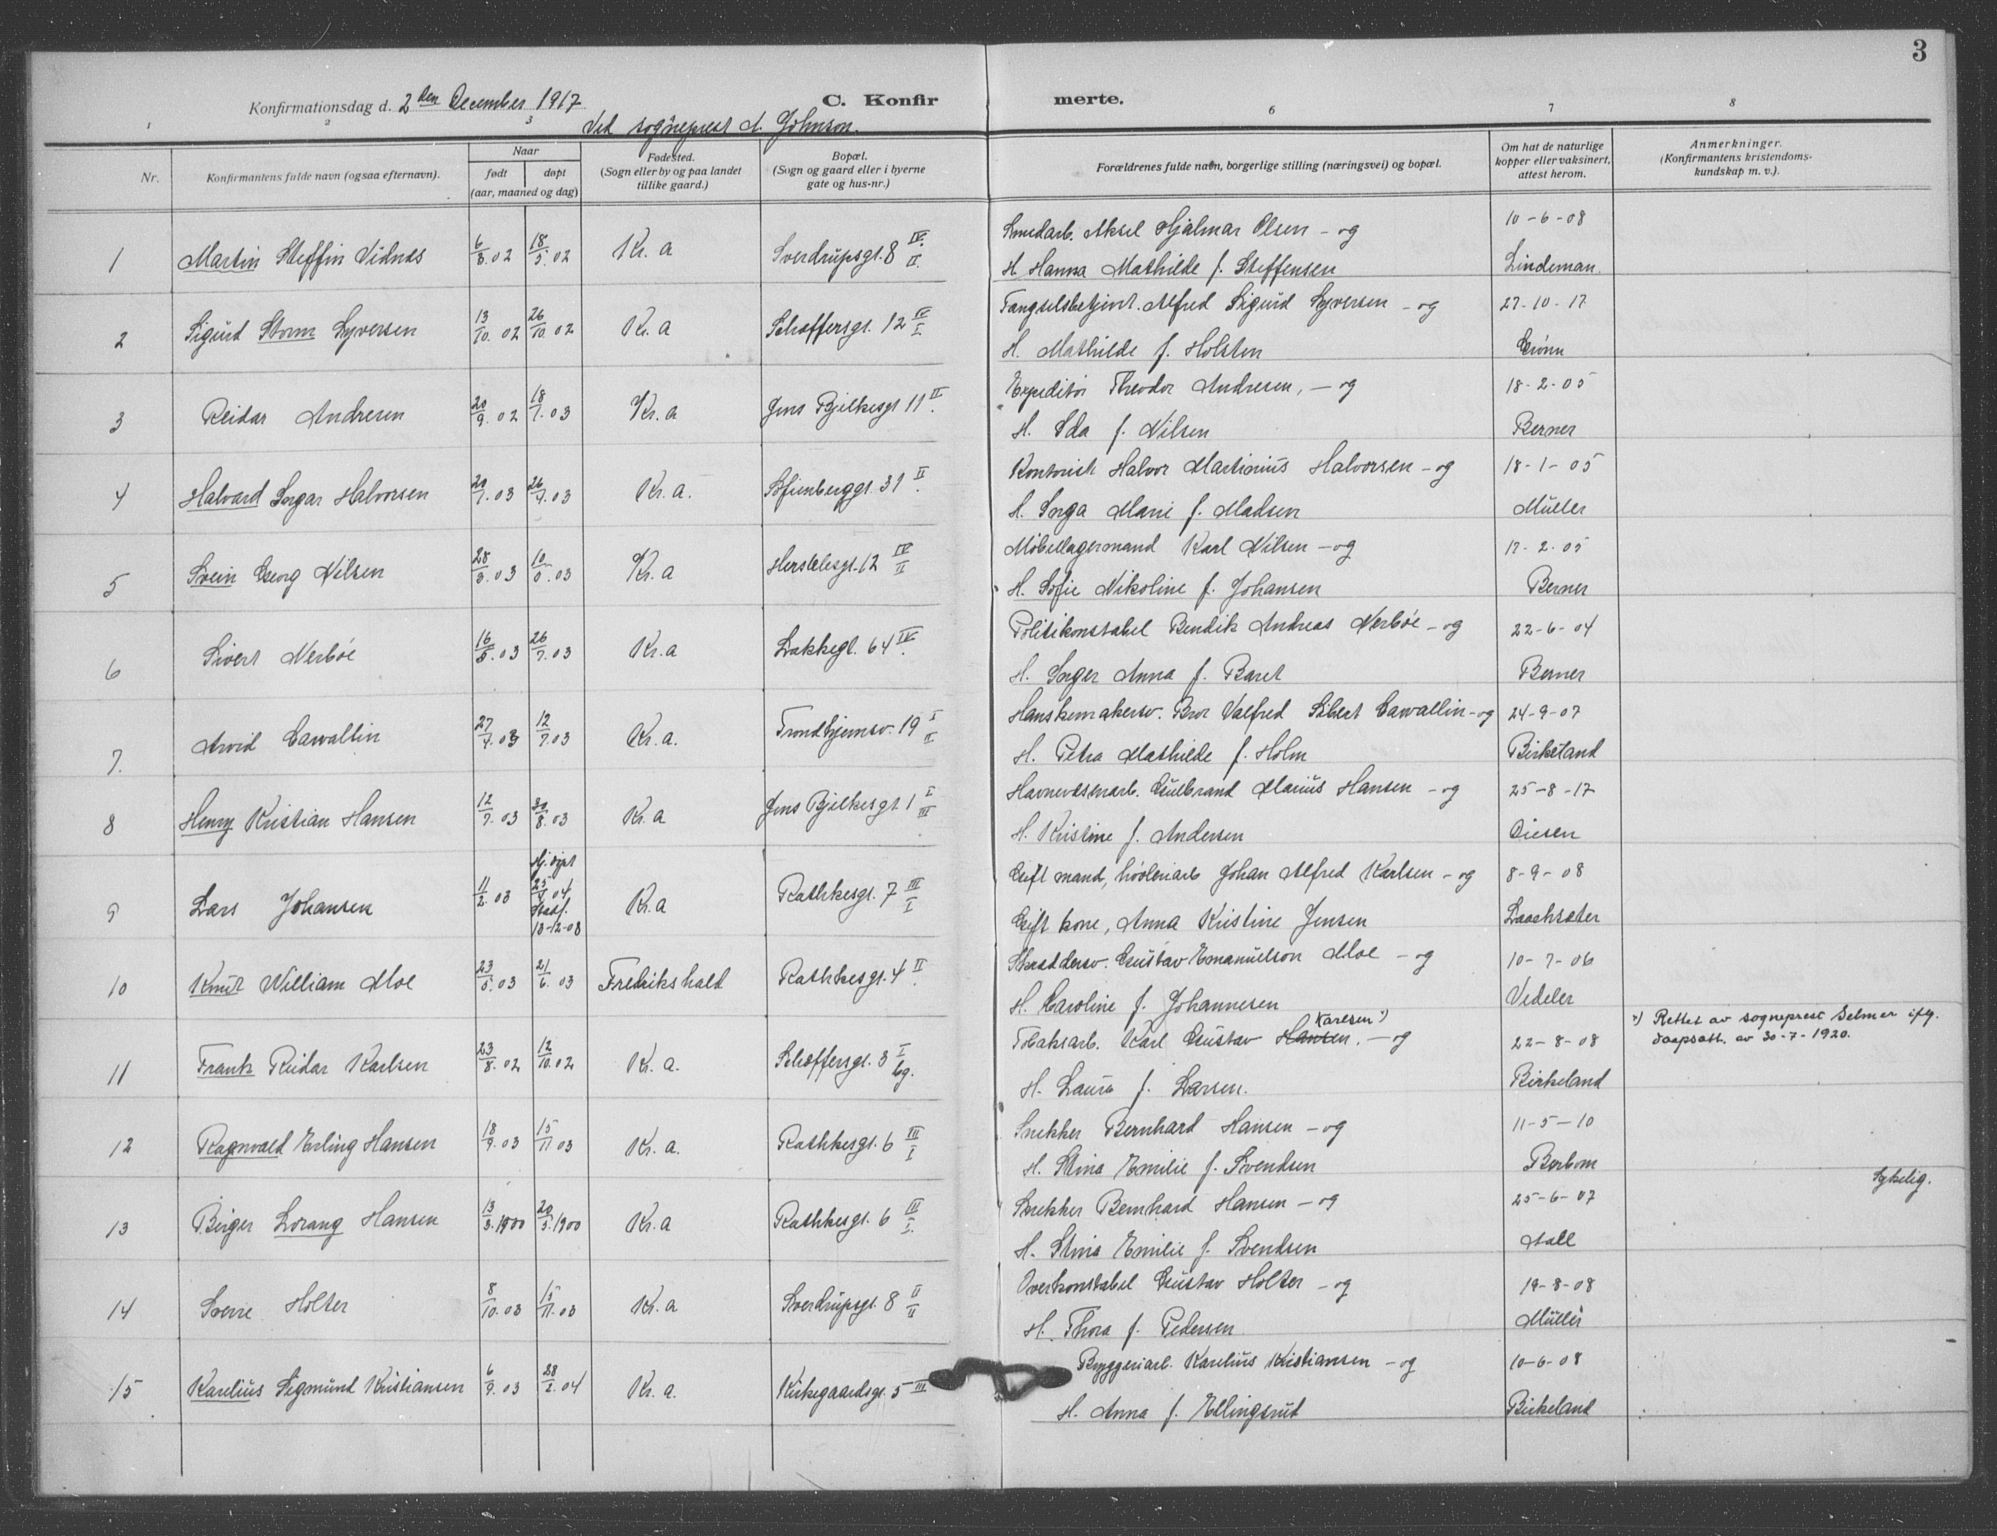 3
Konfirmationsdag d. 2den December 1917
C. Konfirmerte.
Ved sogneprest A. Johnson.
1 2 3 6 7 8
Nr.
Konfirmantens fulde navn (ogsaa efternavn).
Naar
født døpt
(aar, maaned og dag)
Fødested.
(Sogn eller by og paa landet
tillike gaard.)
Bopæl.
(Sogn og gaard eller i byerne
gate og hus-nr.)
Forældrenes fulde navn, borgerlige stilling (næringsvei) og bopæl.
Om hat de naturlige
kopper eller vaksinert,
attest herom.
Anmerkninger.
(Konfirmantens kristendoms-
kundskap m. v.).
1 Martin Steffin Vidnes 6/3.02 18/5.02 Kr.a Sverdrupsgt. 8 IV/II Smedarb. Aksel Hjalmar Olsen - og 10-6-08
H. Hanna Mathilde f. Steffensen Lindeman.
2 Sigurd Storm Syversen 13/10.02 26/10.02 Kr.a Schoffersgt. 12 Fængselsbetjent. Alfred Sigurd Syversen - og 27-10-17
H. Mathilde f. Holsten Grønn
3 Reidar Andresen 20/9.02 18/1.03 Kr.a Jens Bjelkesgt 11 II. Expeditør Theodor Andresen, - og 18-2-05
H. Ida f. Nilsen Berner
4 Halvard Ingar Halvorsen 20/1.03 26/7.03 Kr.a. Sofienberggt. 31 II. Kontorist Halvor Martinius Halvorsen - og 18-1-05
H. Inga Marie f. Madsen Müller
5 Svein Georg Nilsen 28/3.03 Kr.a Herslebsgt. 12 IV/II Møbellagermand Karl Nilsen - og 17-2-05
H. Sofie Nikoline f. Johansen Berner
6 Sivert Nerbøe 16/5.03 26/7.03 Kr.a Lakkegt. 64 IV. Politikonstabel Bendik Andreas Nerbøe - og 22-6-04
H. Inger Anna f. Baret Berner
7. Arvid Cawallin 27/4.03 12/7.03 Kr.a. Trondhjemsv. 19 I/II Hanskemakersv. Bror Valfred Sibert Cawallin - og 24-9-07
H. Petra Mathilde f. Holm Birkeland
8 Henry Kristian Hansen 12/7.03 30/8.03 Kr.a Jens Bjelkesgt 1 I/III Havnevæsenarb. Gulbrand Marius Hansen - og 25-8-17
H. Kristine f. Andersen Diesen
9 Lars Johansen 11/2.03 Hj. døpt 25/9 04 Stadf. 13-12-08 Kr.a Rathkesgt. 7 III/I Gift mand, høvleriarb Johan Alfred Karlsen - og 8-9-08
Gift kone, Anna Kristine Jensen
10 Knut William Moe 23/5.03 21/6.03 Fredrikshald Rathkesgt. 4 II. Skraddersv. Gustav Emanuelson Moe - og 10-7-06
H. Caroline f. Johannesen Vedeler
11 Frank Reidar Karlsen 23/8.02 12/10.02 Kr.a. Schoffersgt. 3 I/bg. Tobaksarb. Karl Gustav Hansen. Karlsen *) - og 22-8-08 *) Rettet av sogneprest Selmer iflg.
daapsatt. av 30-7-1920.
H. Laura f. Larsen. Birkeland
12 Ragnvald Erling Hansen 18/9.03 15/11.03 Kr.a. Rathkesgt. 6 III/I Snekker Bernhard Hansen - og 11-5-10
H. Stina Emilie f. Svendsen
13 Birger Lorang Hansen 13/3.1900 20/5.1900 Kr.a Rathkesgt. 6 III/I. Snekker Bernhard Hansen - og 25-6-07 Sykelig.
H. Stina Emilie f. Svendsen Aall
14 Sverre Holter 8/10.03 15/11.03 Kr.a Sverdrupsgt. 8 II/II Overkonstabel Gustav Holter - og 19-8-08
H. Thora f. Pedersen Müller
15 Karelius Sigmund Kristiansen 6/9.03 28/2.04 Kr.a. Kirkegaardsgt. 5 III Bryggeriarb. Karelius Kristiansen - og 10-6-08
H. Anna f. Ellingsrud Birkeland